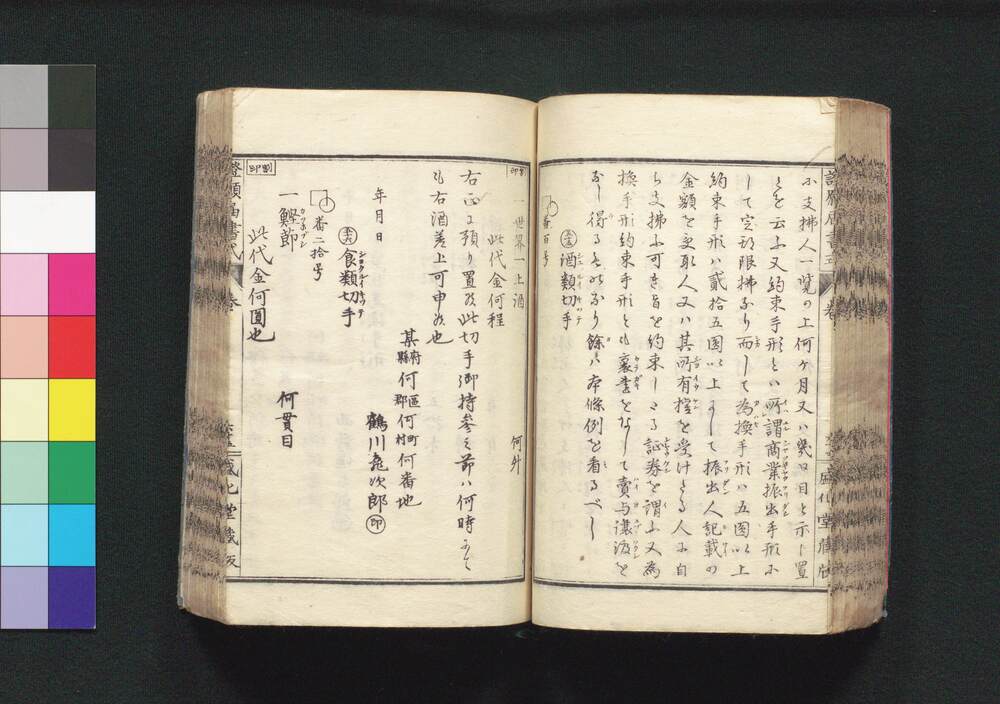 に支拂人一覧の上何ヶ月又ハ幾日目と示し置
きを云ふ又約束手形とハ所謂商業振出手形に
して定期限拂なり而して為換手形ハ五圓以上
約束手形ハ貳拾五圓以上にして振出人記載の
金額を受取人又ハ其所有權を受けたる人に自
ら支拂ふ可き旨を約束したる証券を謂ふ又為
換手形約束手形とも裏書をなして賣与讓渡を
なし得るものなり餘は本條例を看るべし
番百号
酒類切手
一世界一上酒 何升
此代金何程
右正に預り置候此切手御持参之節ハ何時にても
右酒差上可申候也
年月日
某府縣何區郡何町村何番地
鶴川亀次郎 印
食類切手
番二拾号
一鰹節 何貫目
此代金何圓也